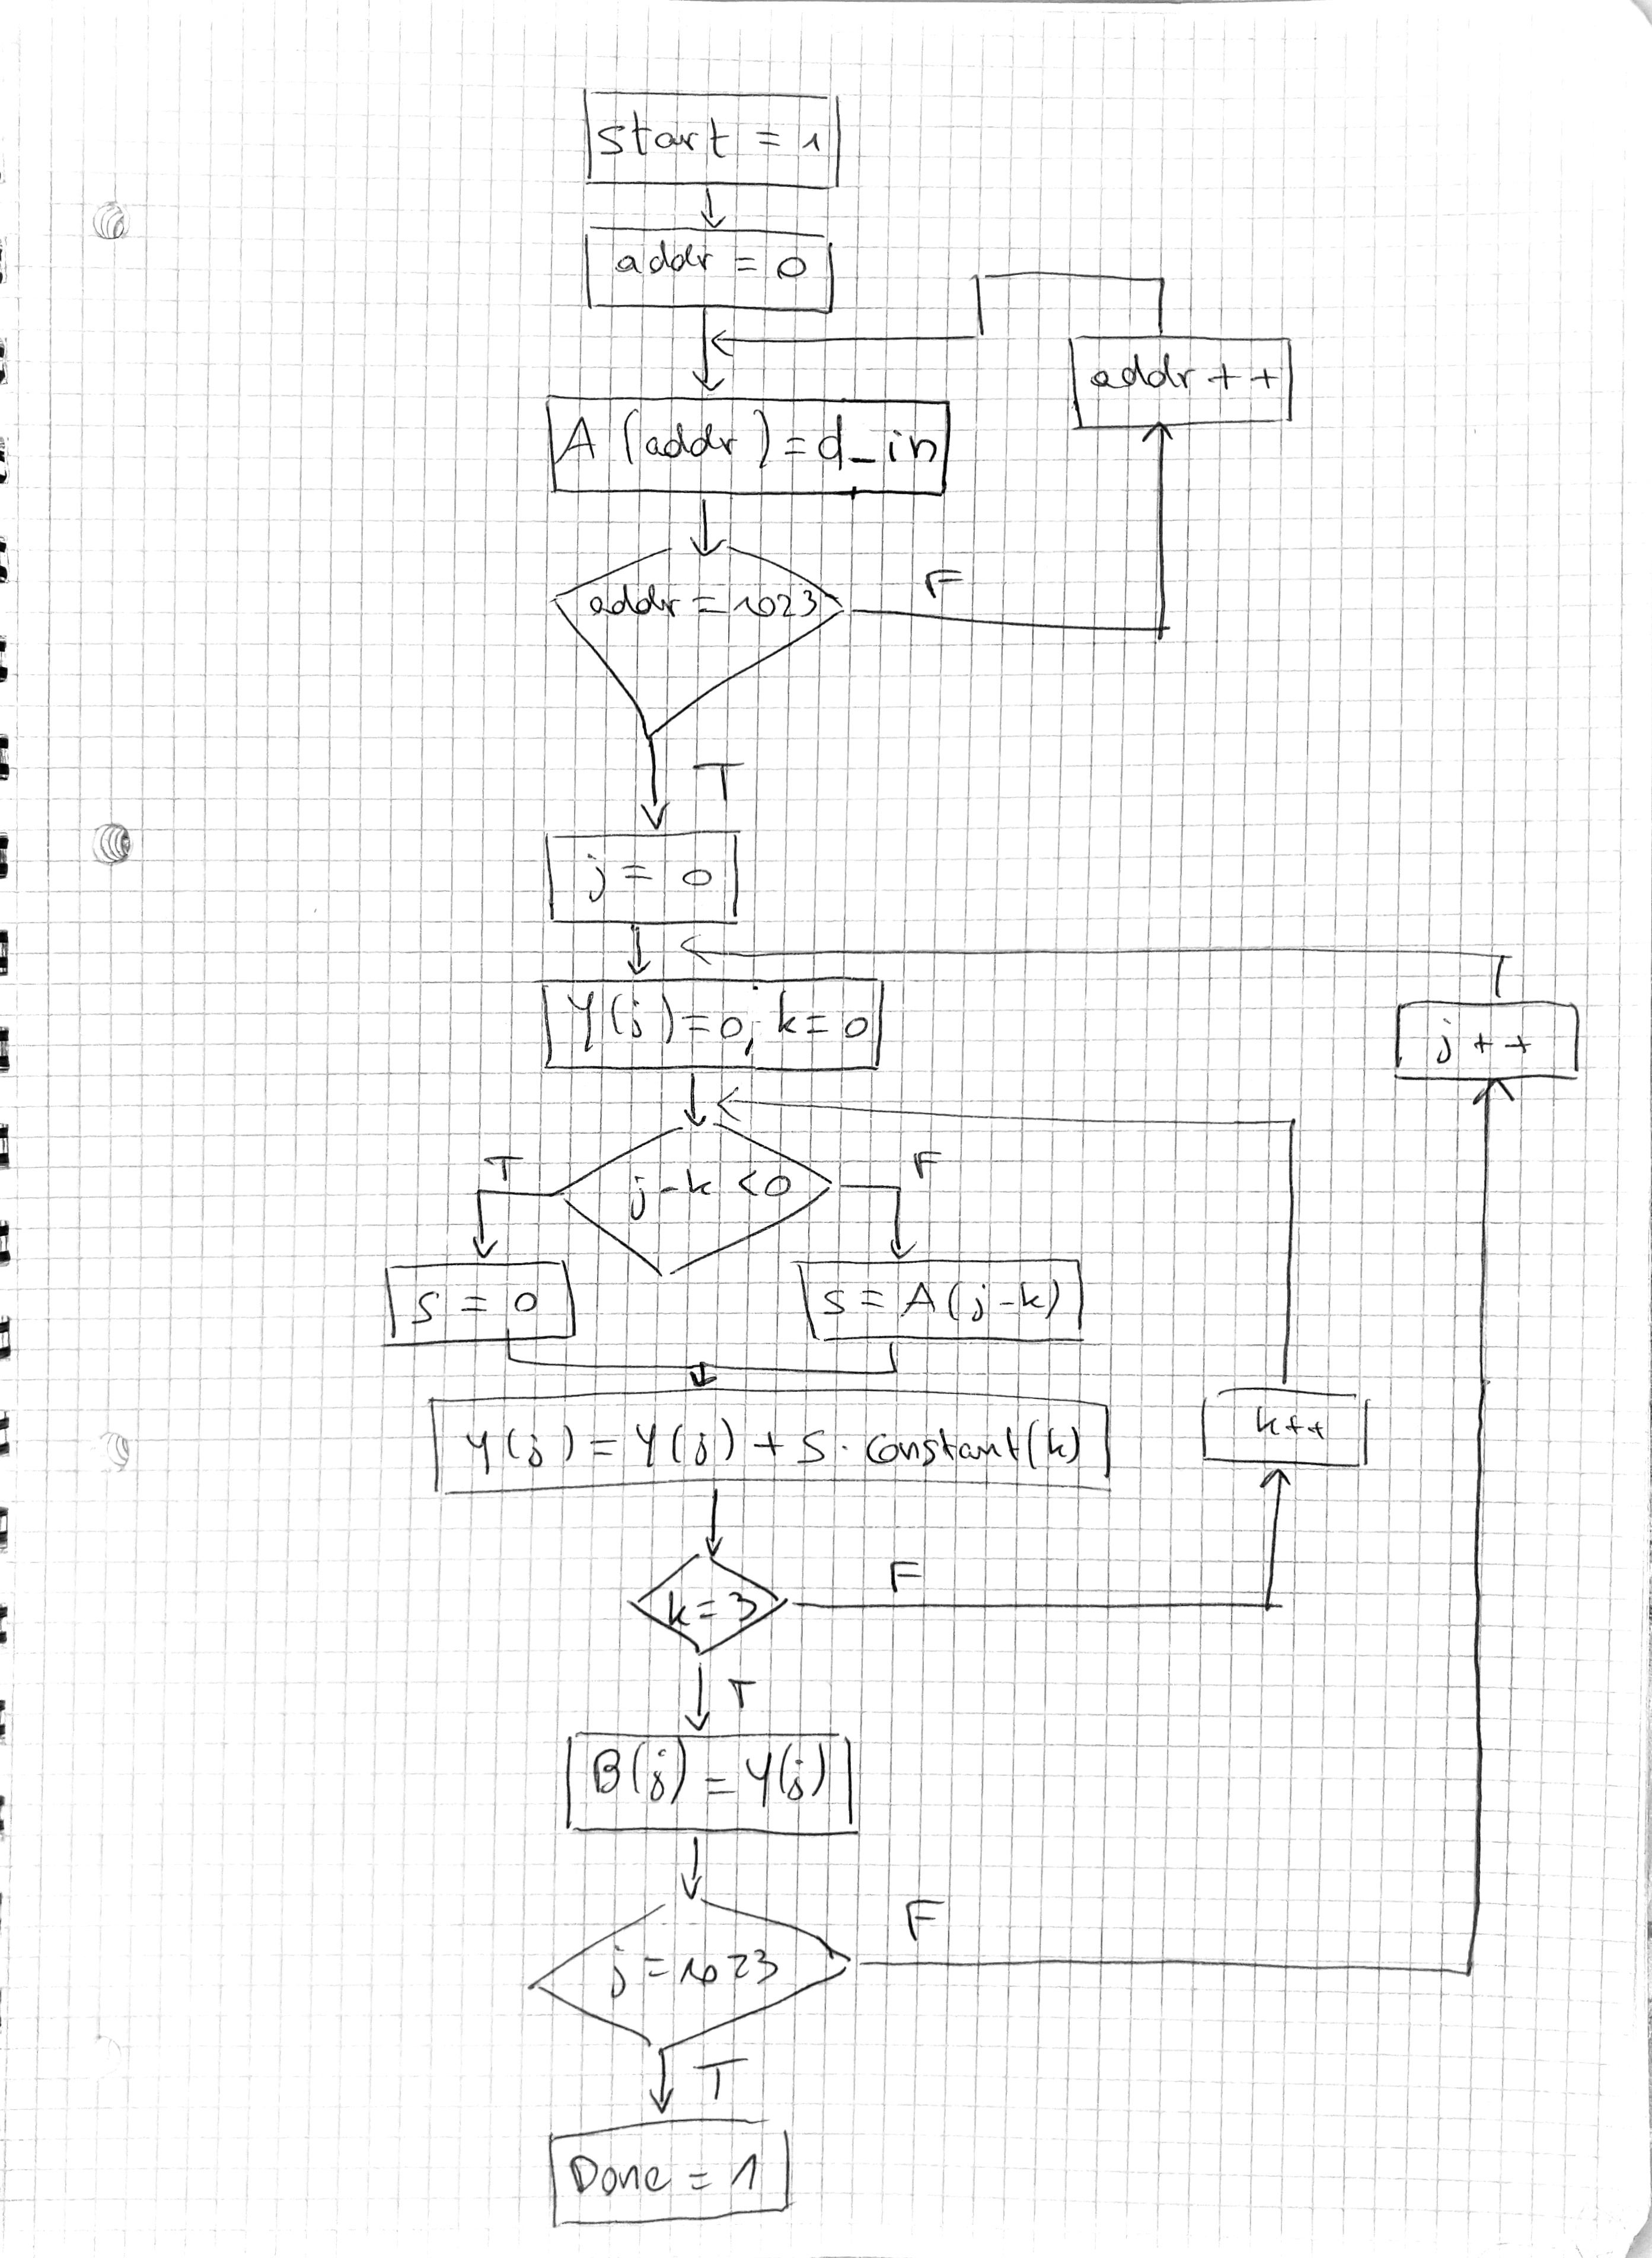 start = 1
addr = 0
addr++
A(addr)=d_in
addr=1023
F
T
j = 0
Y(j)=0; k=0
j++
T
F
j-k <0
s = 0
s = A(j-k)
Y(j) = Y(j) + s · constant(k)
k++
k=3
F
T
B(j) = Y(j)
j=1023
F
T
Done = 1